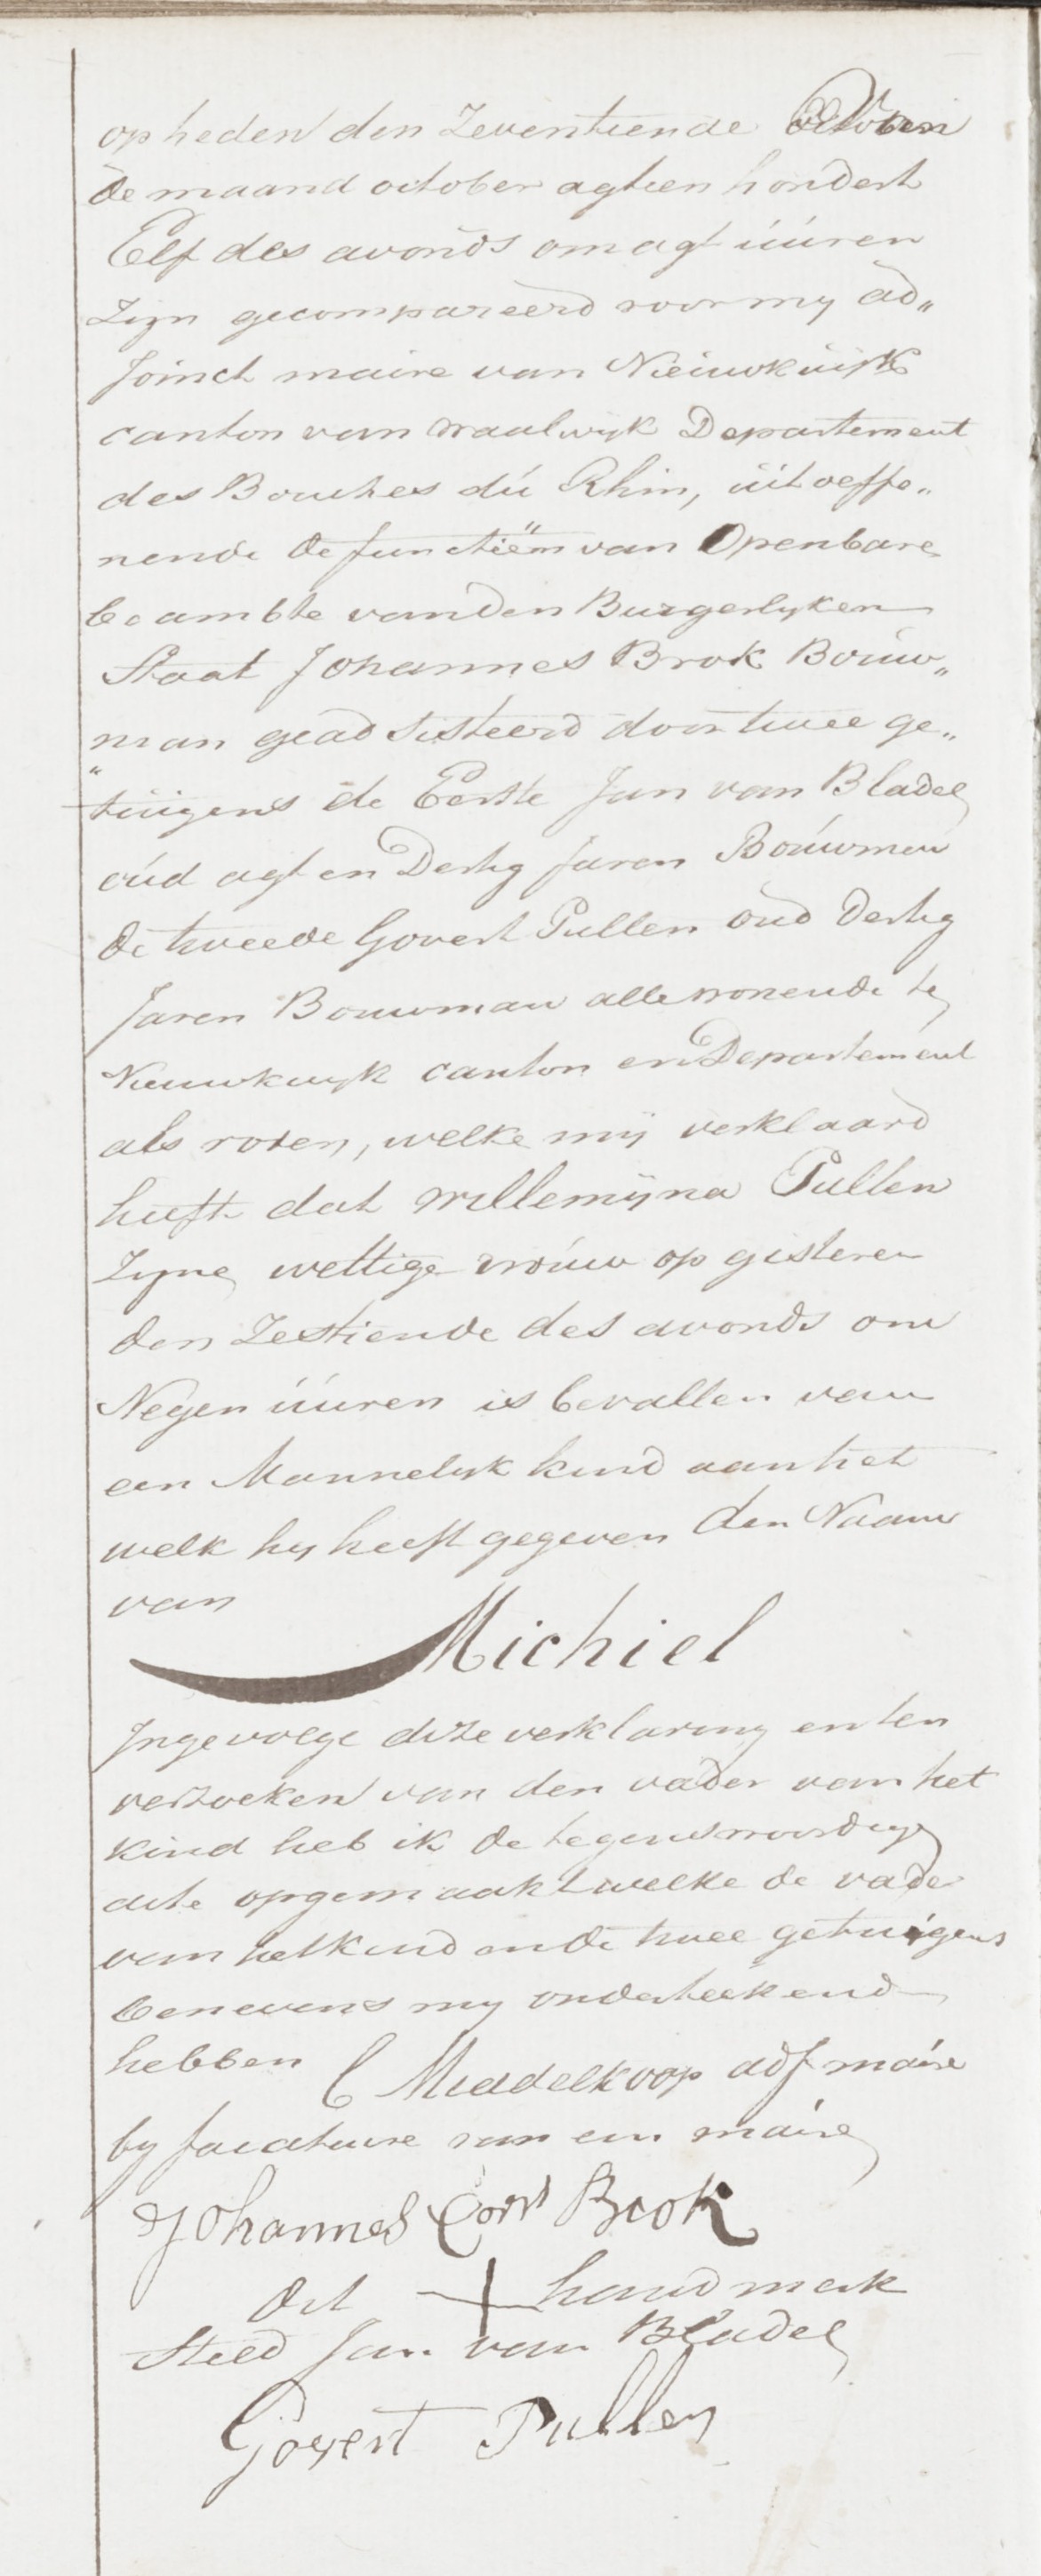 op heden den Zeventiende
de maand october agtien hondert
Elf des avonds om agt úúren
Zijn gecompareerd voor mij ad„
Joinct maire van Nieuwkuijk
canton van Waalwijk Departement
des Bouches dú Rhin, uitoeffe„
nende de functiën van Openbare
beambte van den Burgerlyken
Staat Johannes Brok Bouw„
man geadsisteerd door twee ge„
„tuigens de Eerste Jan van Bladel
oúd agt en Dertig Jaren Boúwman
de tweede Govert Pullen oud Dertig
Jaren Bouwman alle wonende te
Nieuwkuyk canton en Departement
als voren, welke mij verklaard
heeft dat Willemijna Pullen
Zyne wettige vrouw op gisteren
den Zestiende des avonds om
Negen úúren is bevallen van
een Mannelyk kind aan het
welk hy heeft gegeven den Naam
van
Michiel
Ingevolge dize verklaring en ten
verzoeken van den vader van het
kind heb ik de tegenswoordige
acte opgemaakt welke de vader
van het kind en de twee getuigens
benevens my onderteekend
hebben C Middelkoop adj maire
by vacature van een maire
Johannes Corn Brok
dit + handmerk
steld Jan van Bladel
Govert Pullen